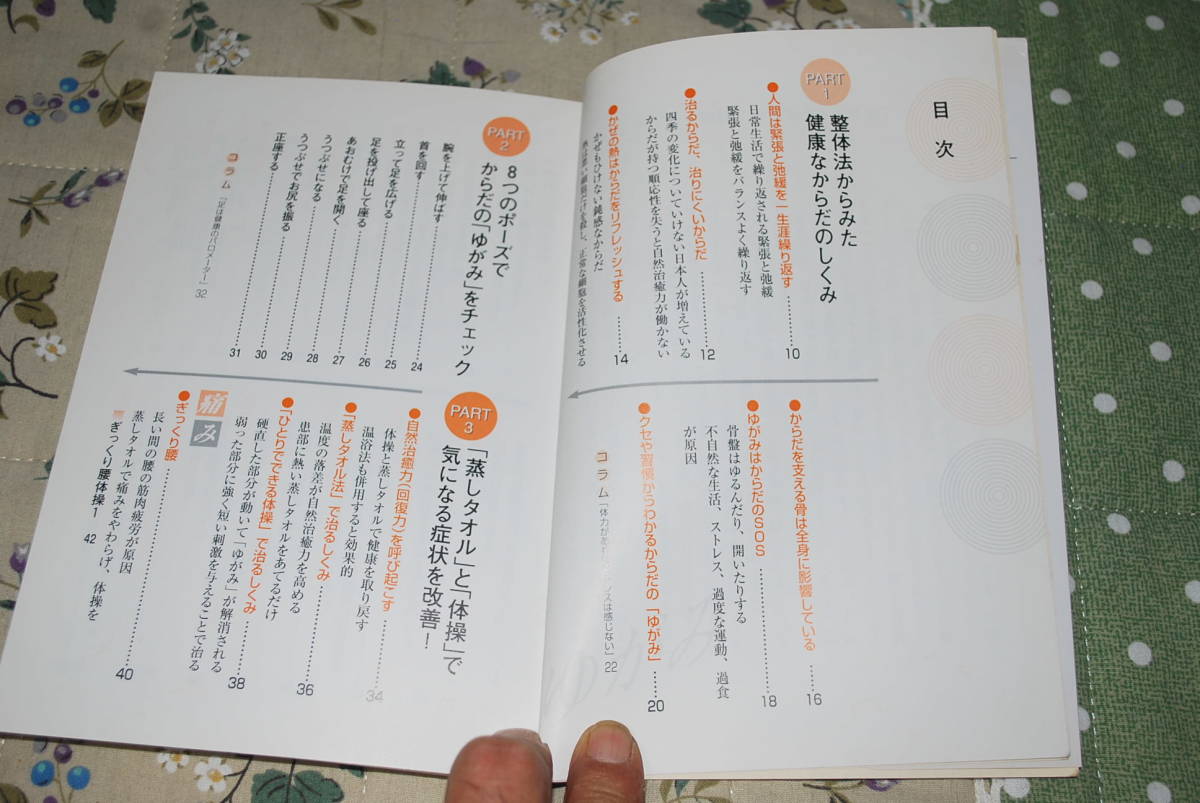 目次
PART 1
整体法からみた
健康なからだのしくみ
●人間は緊張と弛緩を一生涯繰り返す……10
日常生活で繰り返される緊張と弛緩
緊張と弛緩をバランスよく繰り返す
●治るからだ、治りにくいからだ……12
四季の変化についていけない日本人が増えている
からだが持つ順応性を失うと自然治癒力が働かない
●かぜの熱はからだをリフレッシュする……14
かぜもひけない鈍感なからだ
し、正常な細胞を活性化させる
●からだを支える骨は全身に影響している……16
●ゆがみはからだのSOS……18
骨盤はゆるんだり、開いたりする
不自然な生活、ストレス、過度な運動、過食
が原因
●クセや習慣からわかるからだの「ゆがみ」……20
コラム「体力が スは感じない」22
PART 2
8つのポーズで
からだの「ゆがみ」をチェック
腕を上げて伸ばす……24
首を回す……25
立って足を広げる……26
足を投げ出して座る……27
あおむけで足を開く……28
うつぶせになる……29
うつぶせでお尻を振る……30
正座する……31
コラム「足は健康のバロメーター」32
PART 3
「蒸しタオル」と「体操」で
気になる症状を改善!
●自然治癒力(回復力)を呼び起こす……34
体操と蒸しタオルで健康を取り戻す
温浴法も併用すると効果的
●「蒸しタオル法」で治るしくみ……36
温度の落差が自然治癒力を高める
患部に熱い蒸しタオルをあてるだけ
●「ひとりでできる体操」で治るしくみ……38
硬直した部分が動いて「ゆがみ」が解消される
弱った部分に強く短い刺激を与えることで治る
痛み
●ぎっくり腰……40
長い間の腰の筋肉疲労が原因
蒸しタオルで痛みをやわらげ、体操を
ぎっくり腰体操1 42